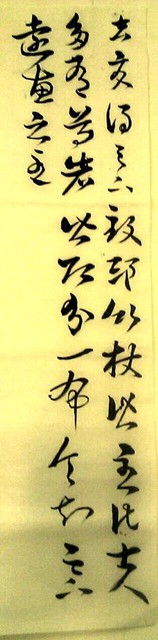 去夏得足下致邛竹杖皆至此士人
多有尊老皆即分布令知足下
遠惠之至